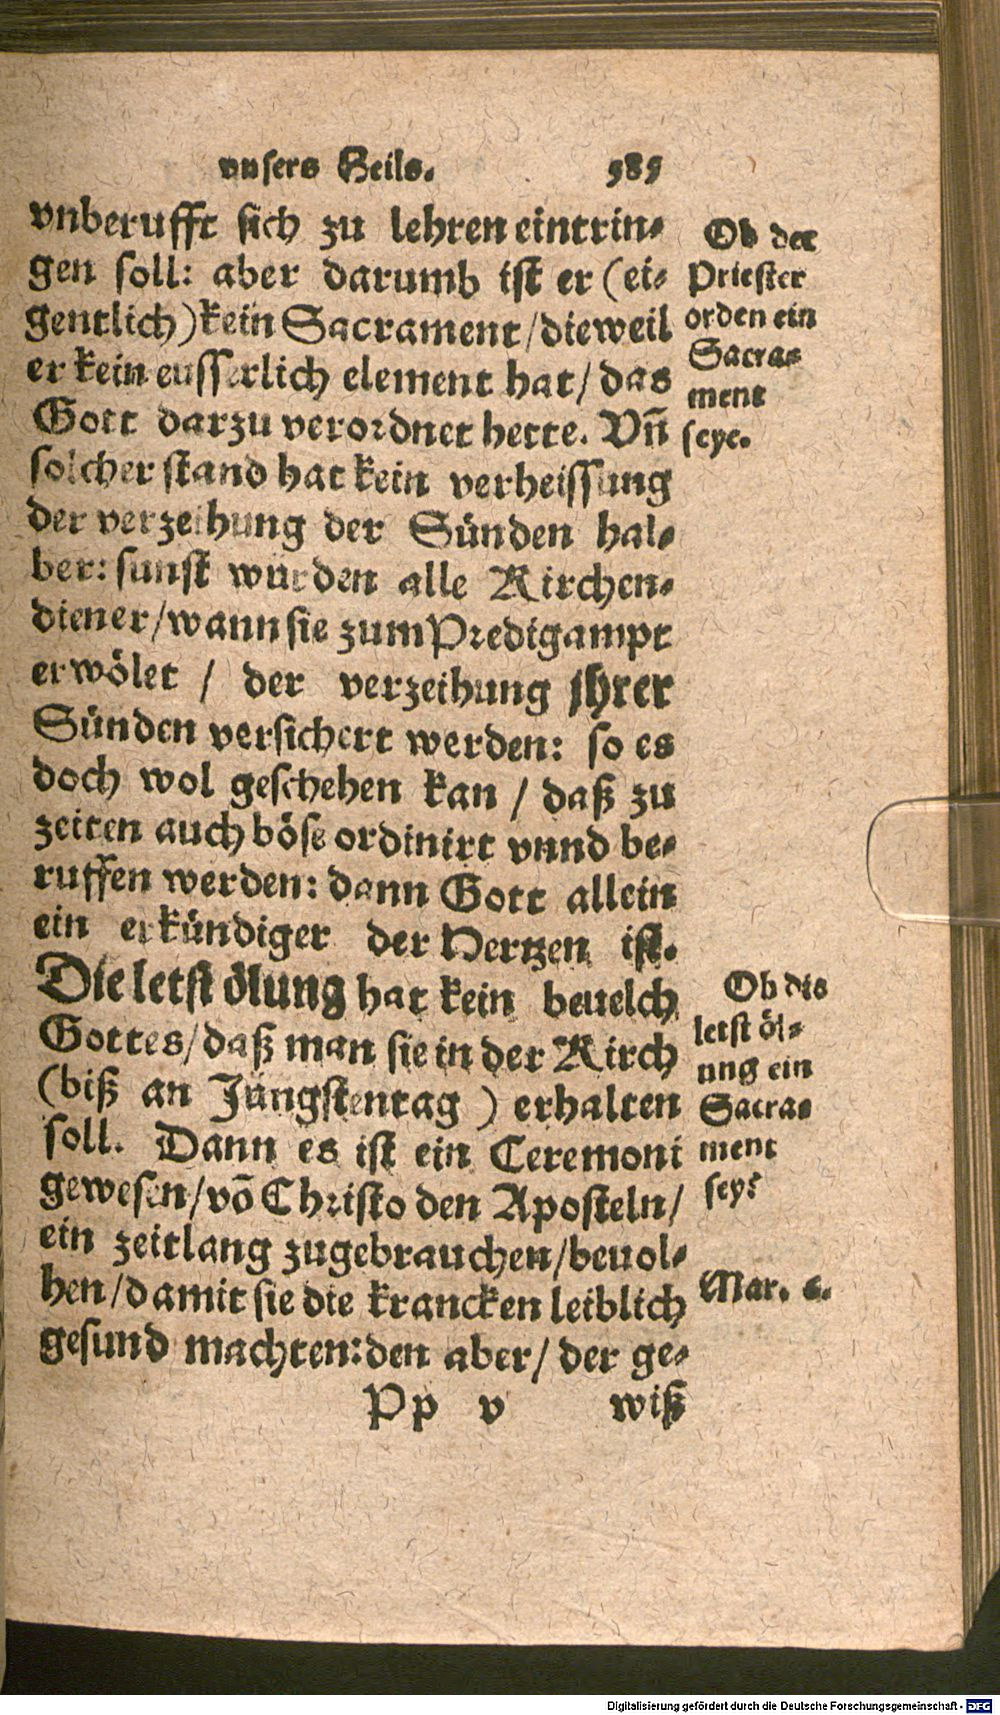 vnsers Heils. 585
vnberufft sich zu lehren eintrin-
gen soll: aber darumb ist er (ei-
gentlich) kein Sacrament/dieweil
er kein eusserlich element hat/ das
Gott darzu verordnet hette. Vñ
solcher stand hat kein verheissung
der verzeihung der Sünden hal-
ber: sunst würden alle Kirchen-
diener/wann sie zum Predigampt
erwölet / der verzeihung jhrer
Sünden versichert werden: so es
doch wol geschehen kan / daß zu
zeiten auch böse ordinirt vnnd be-
ruffen werden: dann Gott allein
ein erkündiger der Hertzen ist.
Die letst ölung hat kein beuelch
Gottes/daß man sie in der Kirch
(biß an Jüngstentag ) erhalten
soll. Dann es ist ein Ceremoni
gewesen/võ Christo den Aposteln/
ein zeitlang zugebrauchen/beuol-
hen/damit sie die krancken leiblich
gesund machten:den aber/ der ge-
Pp v wiß
Ob der
Priester
orden ein
Sacra-
ment
seye.
Ob die
letst öl-
ung ein
Sacra-
ment
sey?
Mar. 6.
Digitalisierung gefördert durch die Deutsche Forschungsgemeinschaft - DFG